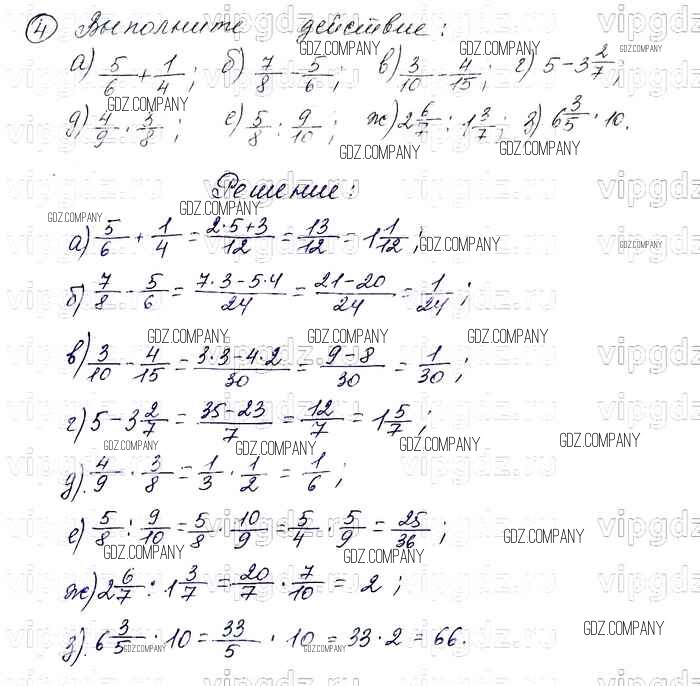 ④ Выполните действие:
а) 5/6 + 1/4; б) 7/8 - 5/6; в) 3/10 - 4/15; г) 5 - 3 2/7;
д) 4/9 · 3/8; е) 5/8 : 9/10; ж) 2 6/7 : 1 3/7; з) 6 3/5 · 10.
Решение:
а) 5/6 + 1/4 = (2·5+3)/12 = 13/12 = 1 1/12;
б) 7/8 - 5/6 = (7·3-5·4)/24 = (21-20)/24 = 1/24;
в) 3/10 - 4/15 = (3·3-4·2)/30 = (9-8)/30 = 1/30;
г) 5 - 3 2/7 = (35-23)/7 = 12/7 = 1 5/7;
д) 4/9 · 3/8 = 1/3 · 1/2 = 1/6;
е) 5/8 : 9/10 = 5/8 · 10/9 = 5/4 · 5/9 = 25/36;
ж) 2 6/7 : 1 3/7 = 20/7 · 7/10 = 2;
з) 6 3/5 · 10 = 33/5 · 10 = 33·2 = 66.